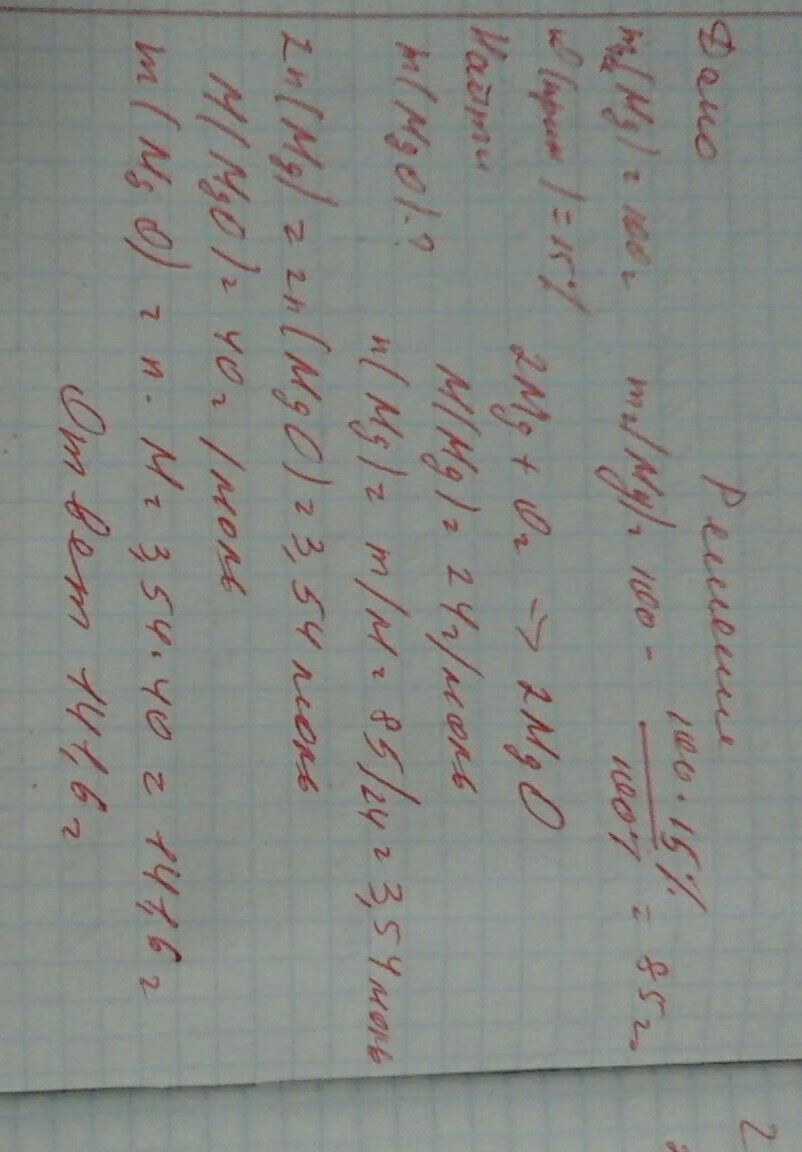 Дано
Решение
m₁(Mg) = 100г
m₂(Mg) = 100 - 100·15% / 100% = 85г.
w(прим) = 15%
Найти
2Mg + O₂ → 2MgO
m(MgO)-?
M(Mg) = 24г/моль
n(Mg) = m/M = 85/24 = 3,54 моль
2n(Mg) = 2n(MgO) = 3,54 моль
M(MgO) = 40г/моль
m(MgO) = n·M = 3,54·40 = 141,6г
Ответ 141,6г
2